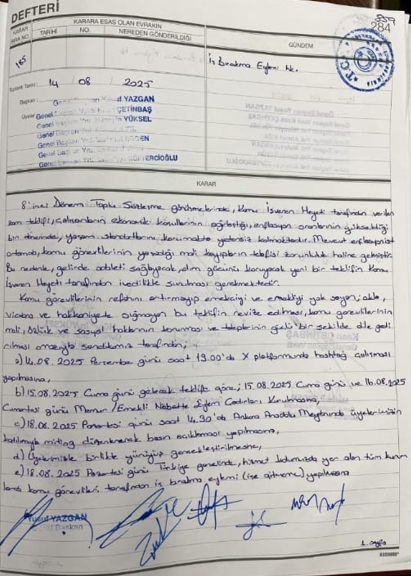 DEFTERİ
284
KARAR
SIRA NO.
KARARA ESAS OLAN EVRAKIN
TARİHİ NO. NEREDEN GÖNDERİLDİĞİ
GÜNDEM
165
İş Bırakma Eylemi Hk.
T.C.
Toplantı Tarihi: 14 08 2025
Başkan: YAZGAN
Üyeler: Genel ÇETİNBAŞ
Genel YÜKSEL
Genel Başkan
Genel Başkan Yrd.
Genel Başkan Yrd.
KARAR
8'inci Dönem Toplu Sözleşme görüşmelerinde, Kamu İşveren Heyeti tarafından verilen
zam teklifi, çalışanların ekonomik koşullarının ağırlaştığı, enflasyon oranlarının yükseldiği
bir dönemde, yaşam standartlarını korumakta yetersiz kalmaktadır. Mevcut enflasyonist
ortamda, kamu görevlilerinin yaşadığı mali kayıpların telafisi zorunluluk haline gelmiştir.
Bu nedenle, gelirde adaleti sağlayacak, alım gücünü koruyacak yeni bir teklifin Kamu
İşveren Heyeti tarafından ivedilikle sunulması gerekmektedir.
Kamu görevlilerinin refahını artırmayıp emekçiyi ve emekliyi yok sayan; akla,
vicdana ve hakkaniyete sığmayan bu teklifin revize edilmesi, kamu görevlilerinin
mali, özlük ve sosyal haklarının korunması ve taleplerinin güçlü bir şekilde dile geti
rilmesi amacıyla sendikamız tarafından;
a) 14.08.2025 Perşembe günü saat 19.00'da X platformunda hashtag çalışması
yapılmasına,
b) 15.08.2025 Cuma günü gelecek teklife göre; 15.08.2025 Cuma günü ve 16.08.2025
Cumartesi günü Memur/Emekli Nöbette Eylem Çadırları Kurulmasına,
c) 18.08.2025 Pazartesi günü saat 14.30'da Ankara Anadolu Meydanında üyelerimizin
katılımıyla miting düzenlenerek basın açıklaması yapılmasına,
d) Üyelerimizle birlikte yürüyüş gerçekleştirilmesine,
e) 18.08.2025 Pazartesi günü Türkiye genelinde, hizmet kolumuzda yer alan tüm kurum
larda kamu görevlileri tarafından iş bırakma eylemi (işe gitmeme) yapılmasına
Yusuf YAZGAN